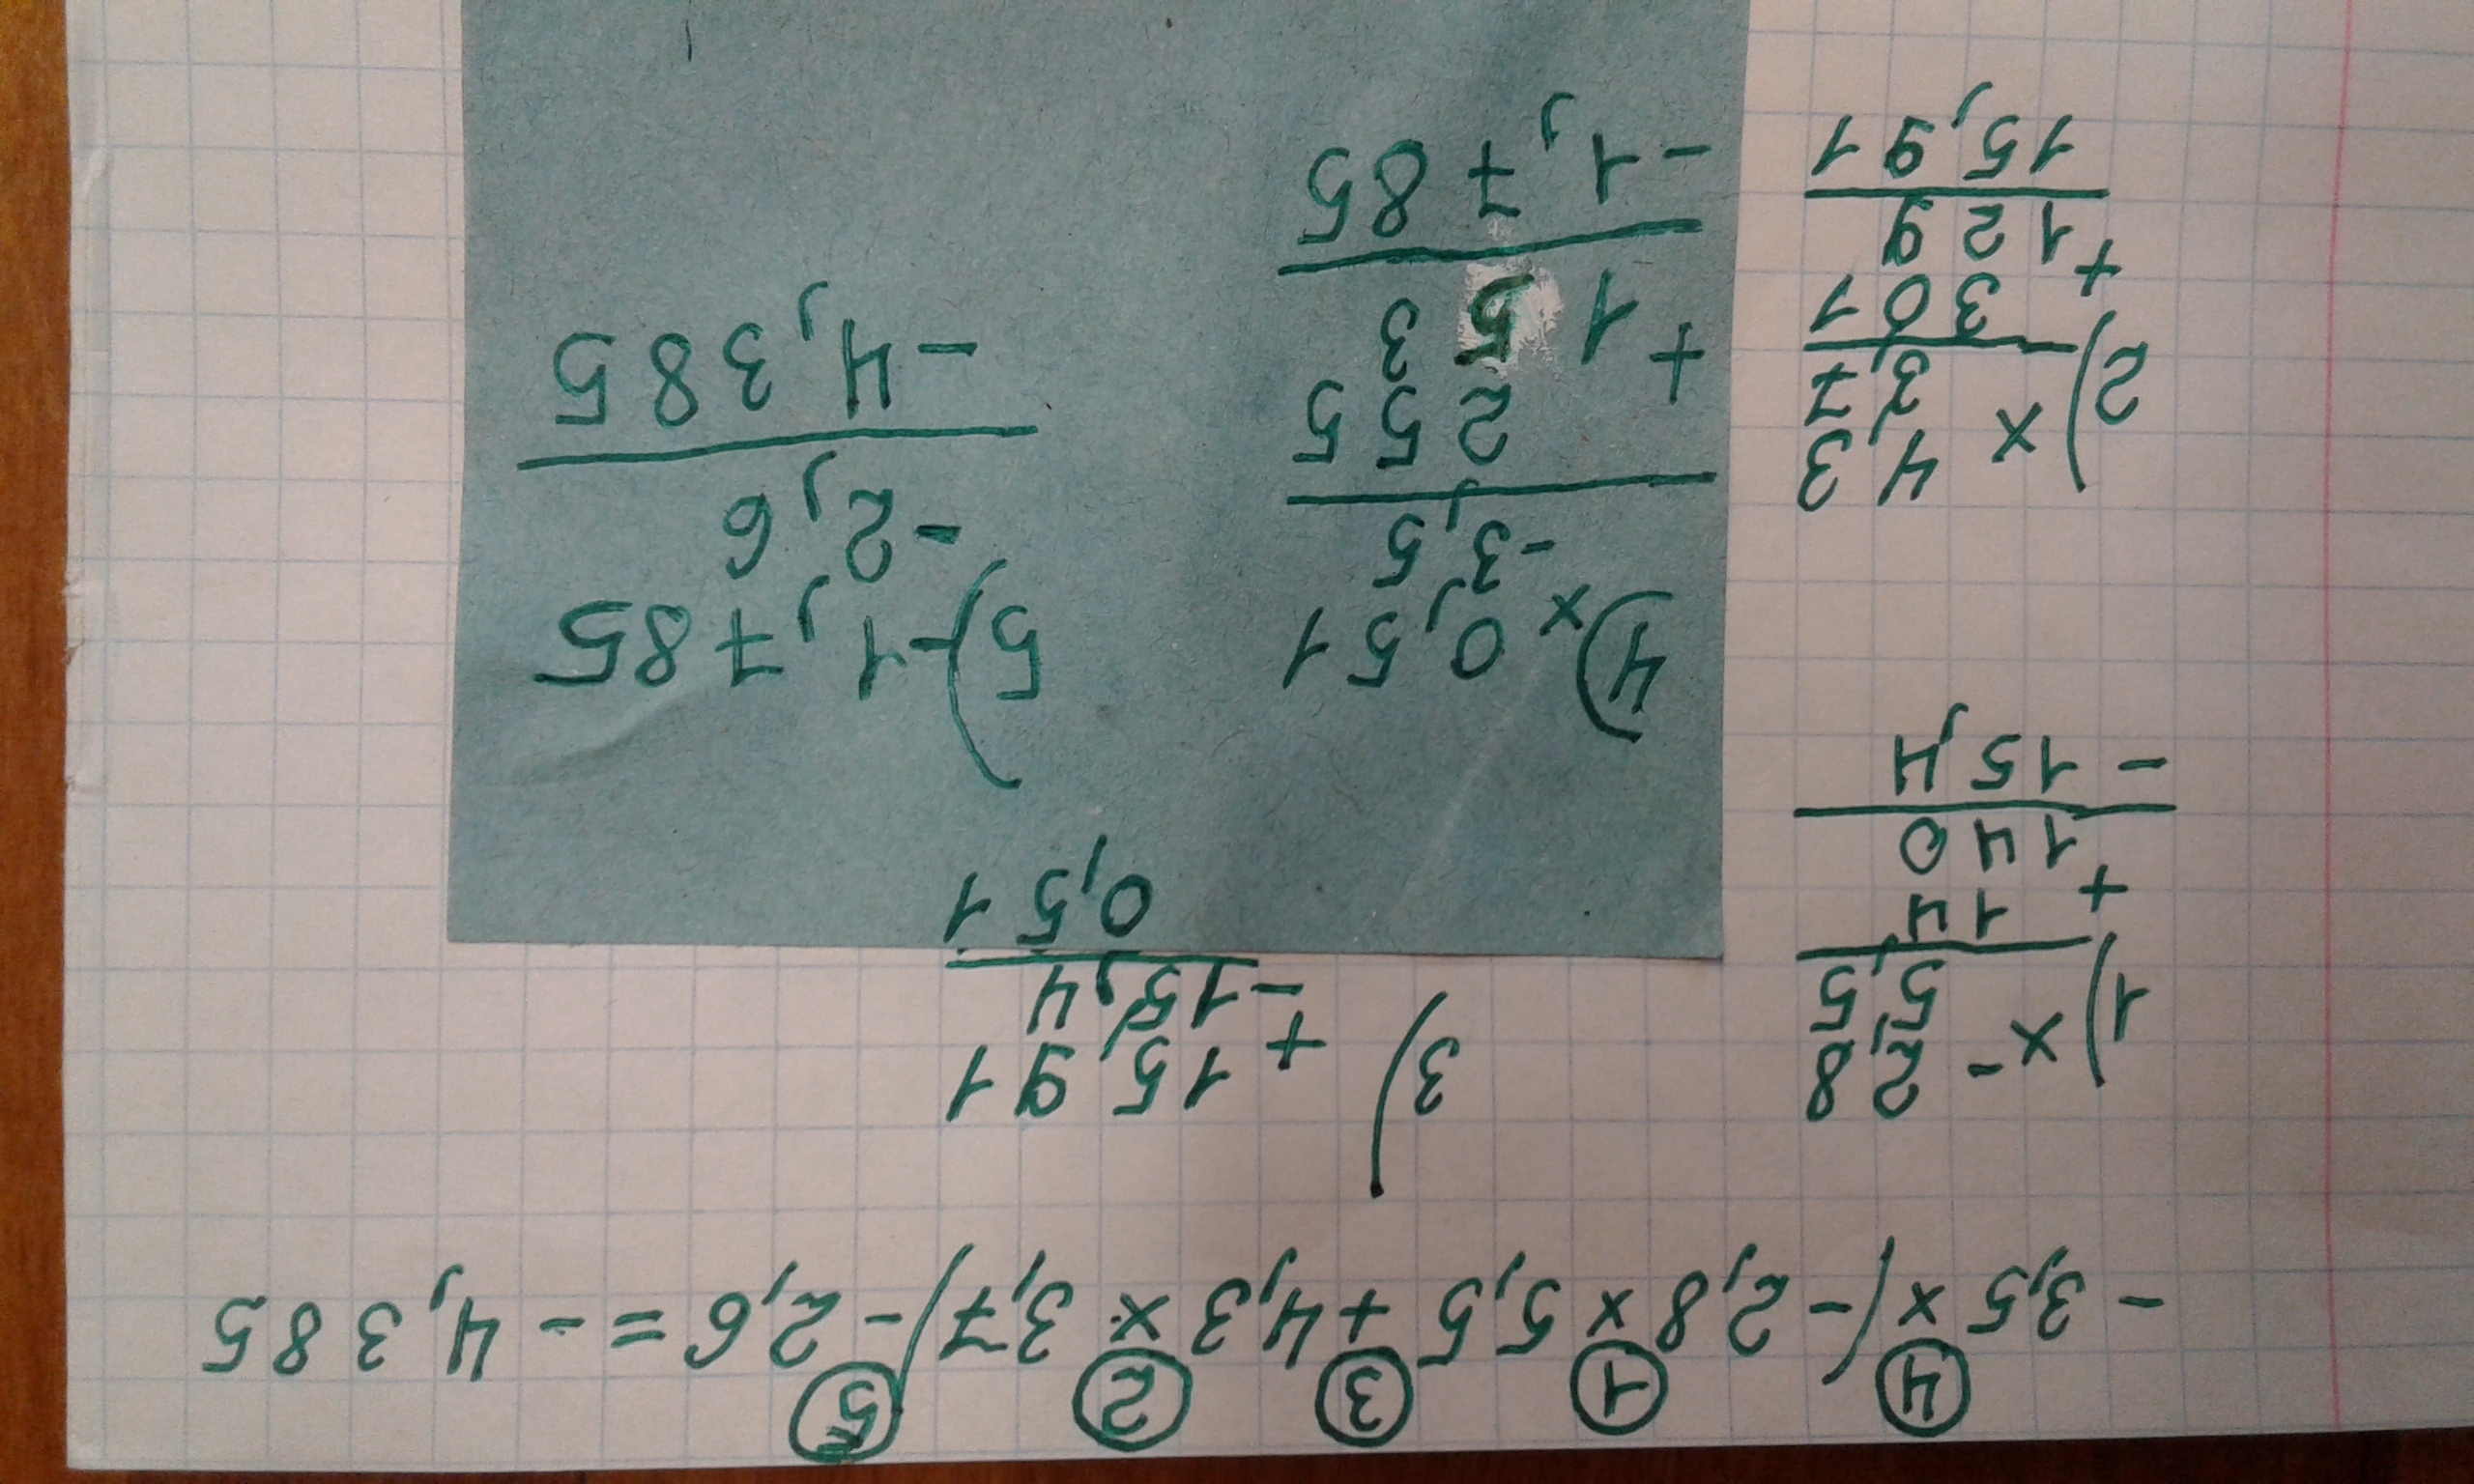 4 1 3 2 5
-3,5 x (-2,8 x 5,5 + 4,3 x 3,7) - 2,6 = -4,385
1) x -2,8
5,5
14
+
140
-15,4
3) 15,91
+
-15,4
0,51
2) x 4,3
3,7
301
+
129
15,91
4) x 0,51
-3,5
255
+ 153
-1,785
5) -1,785
-2,6
-4,385